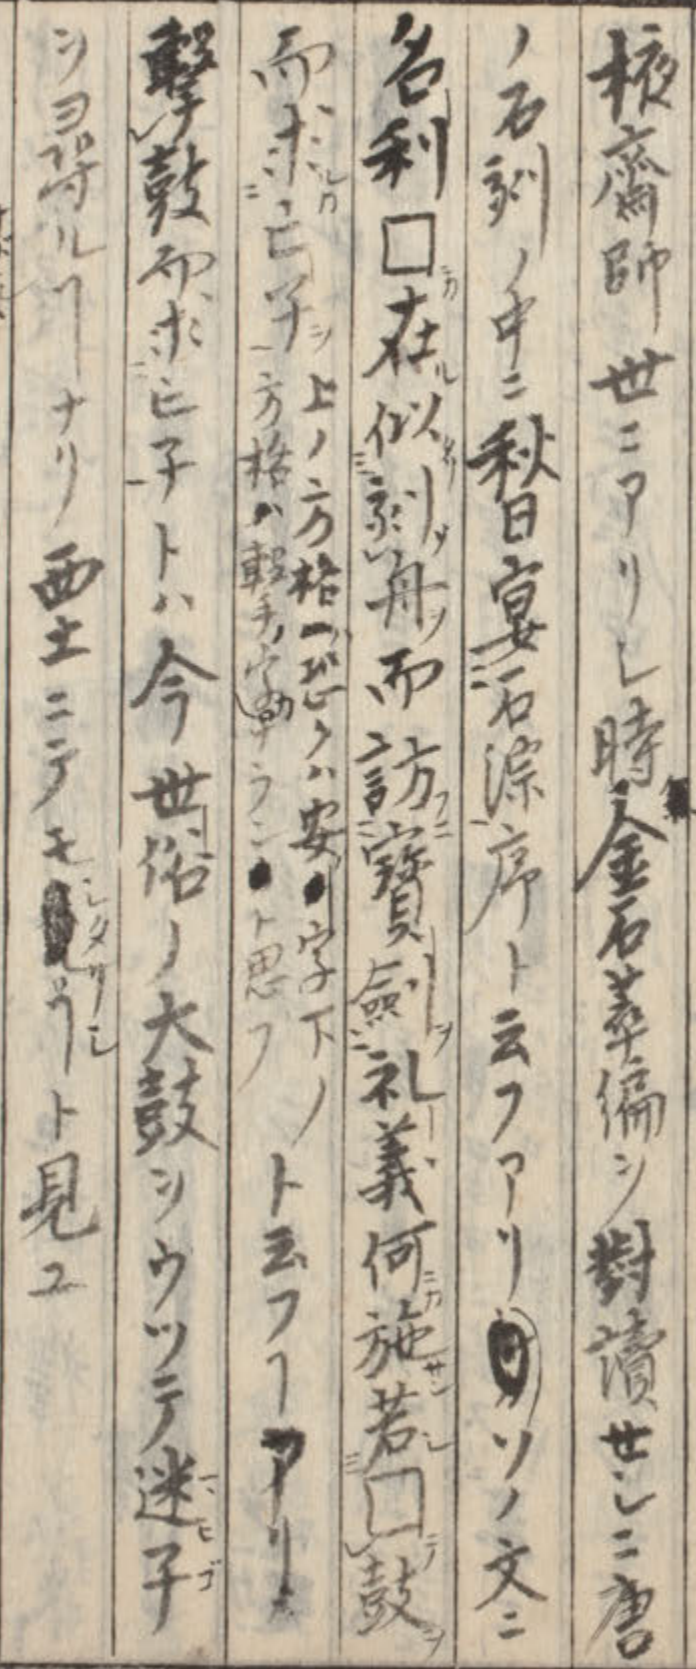 棭齋師世ニアリシ時金石萃編ヲ對讀せしニ唐
ノ石刻ノ中ニ秋日宴石淙序ト云フアリソノ文ニ
名利□在似刻舟而訪寶劍礼義何施若□鼓
而求亡子上ノ方格恐クハ安ノ字下ノ
方格ハ擊ノ字ナラントト思フト云フ𬼀アリ
擊鼓而求亡子トハ今世俗ノ大鼓ヲウツテ迷子
ヲヨヿナリ西土ニテモシタリト見ユ